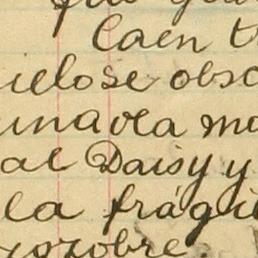 Caen t
ielo se obsc
una ola ma
al Daisy y
la frági